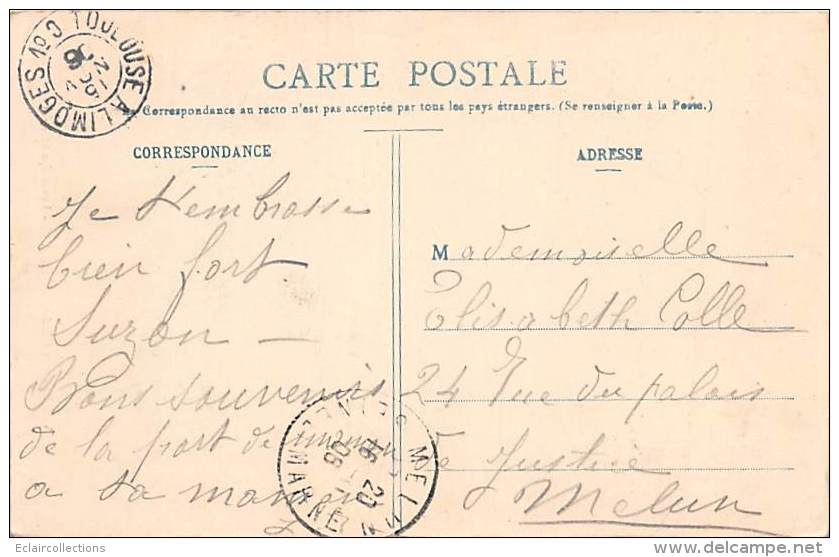 TOULOUSE A LIMOGES
CARTE POSTALE
La Correspondance au recto n'est pas acceptée par tous les pays étrangers. (Se renseigner à la Poste.)
CORRESPONDANCE
Je t'embrasse
bien fort
Suzon —
Bons souvenirs
de la part de maman
a ta maman
ADRESSE
Mademoiselle
Elisabeth Colle
24 Rue du palais
de Justice
Melun
MELUN
MARNE
Eclaircollections
delcampe.net